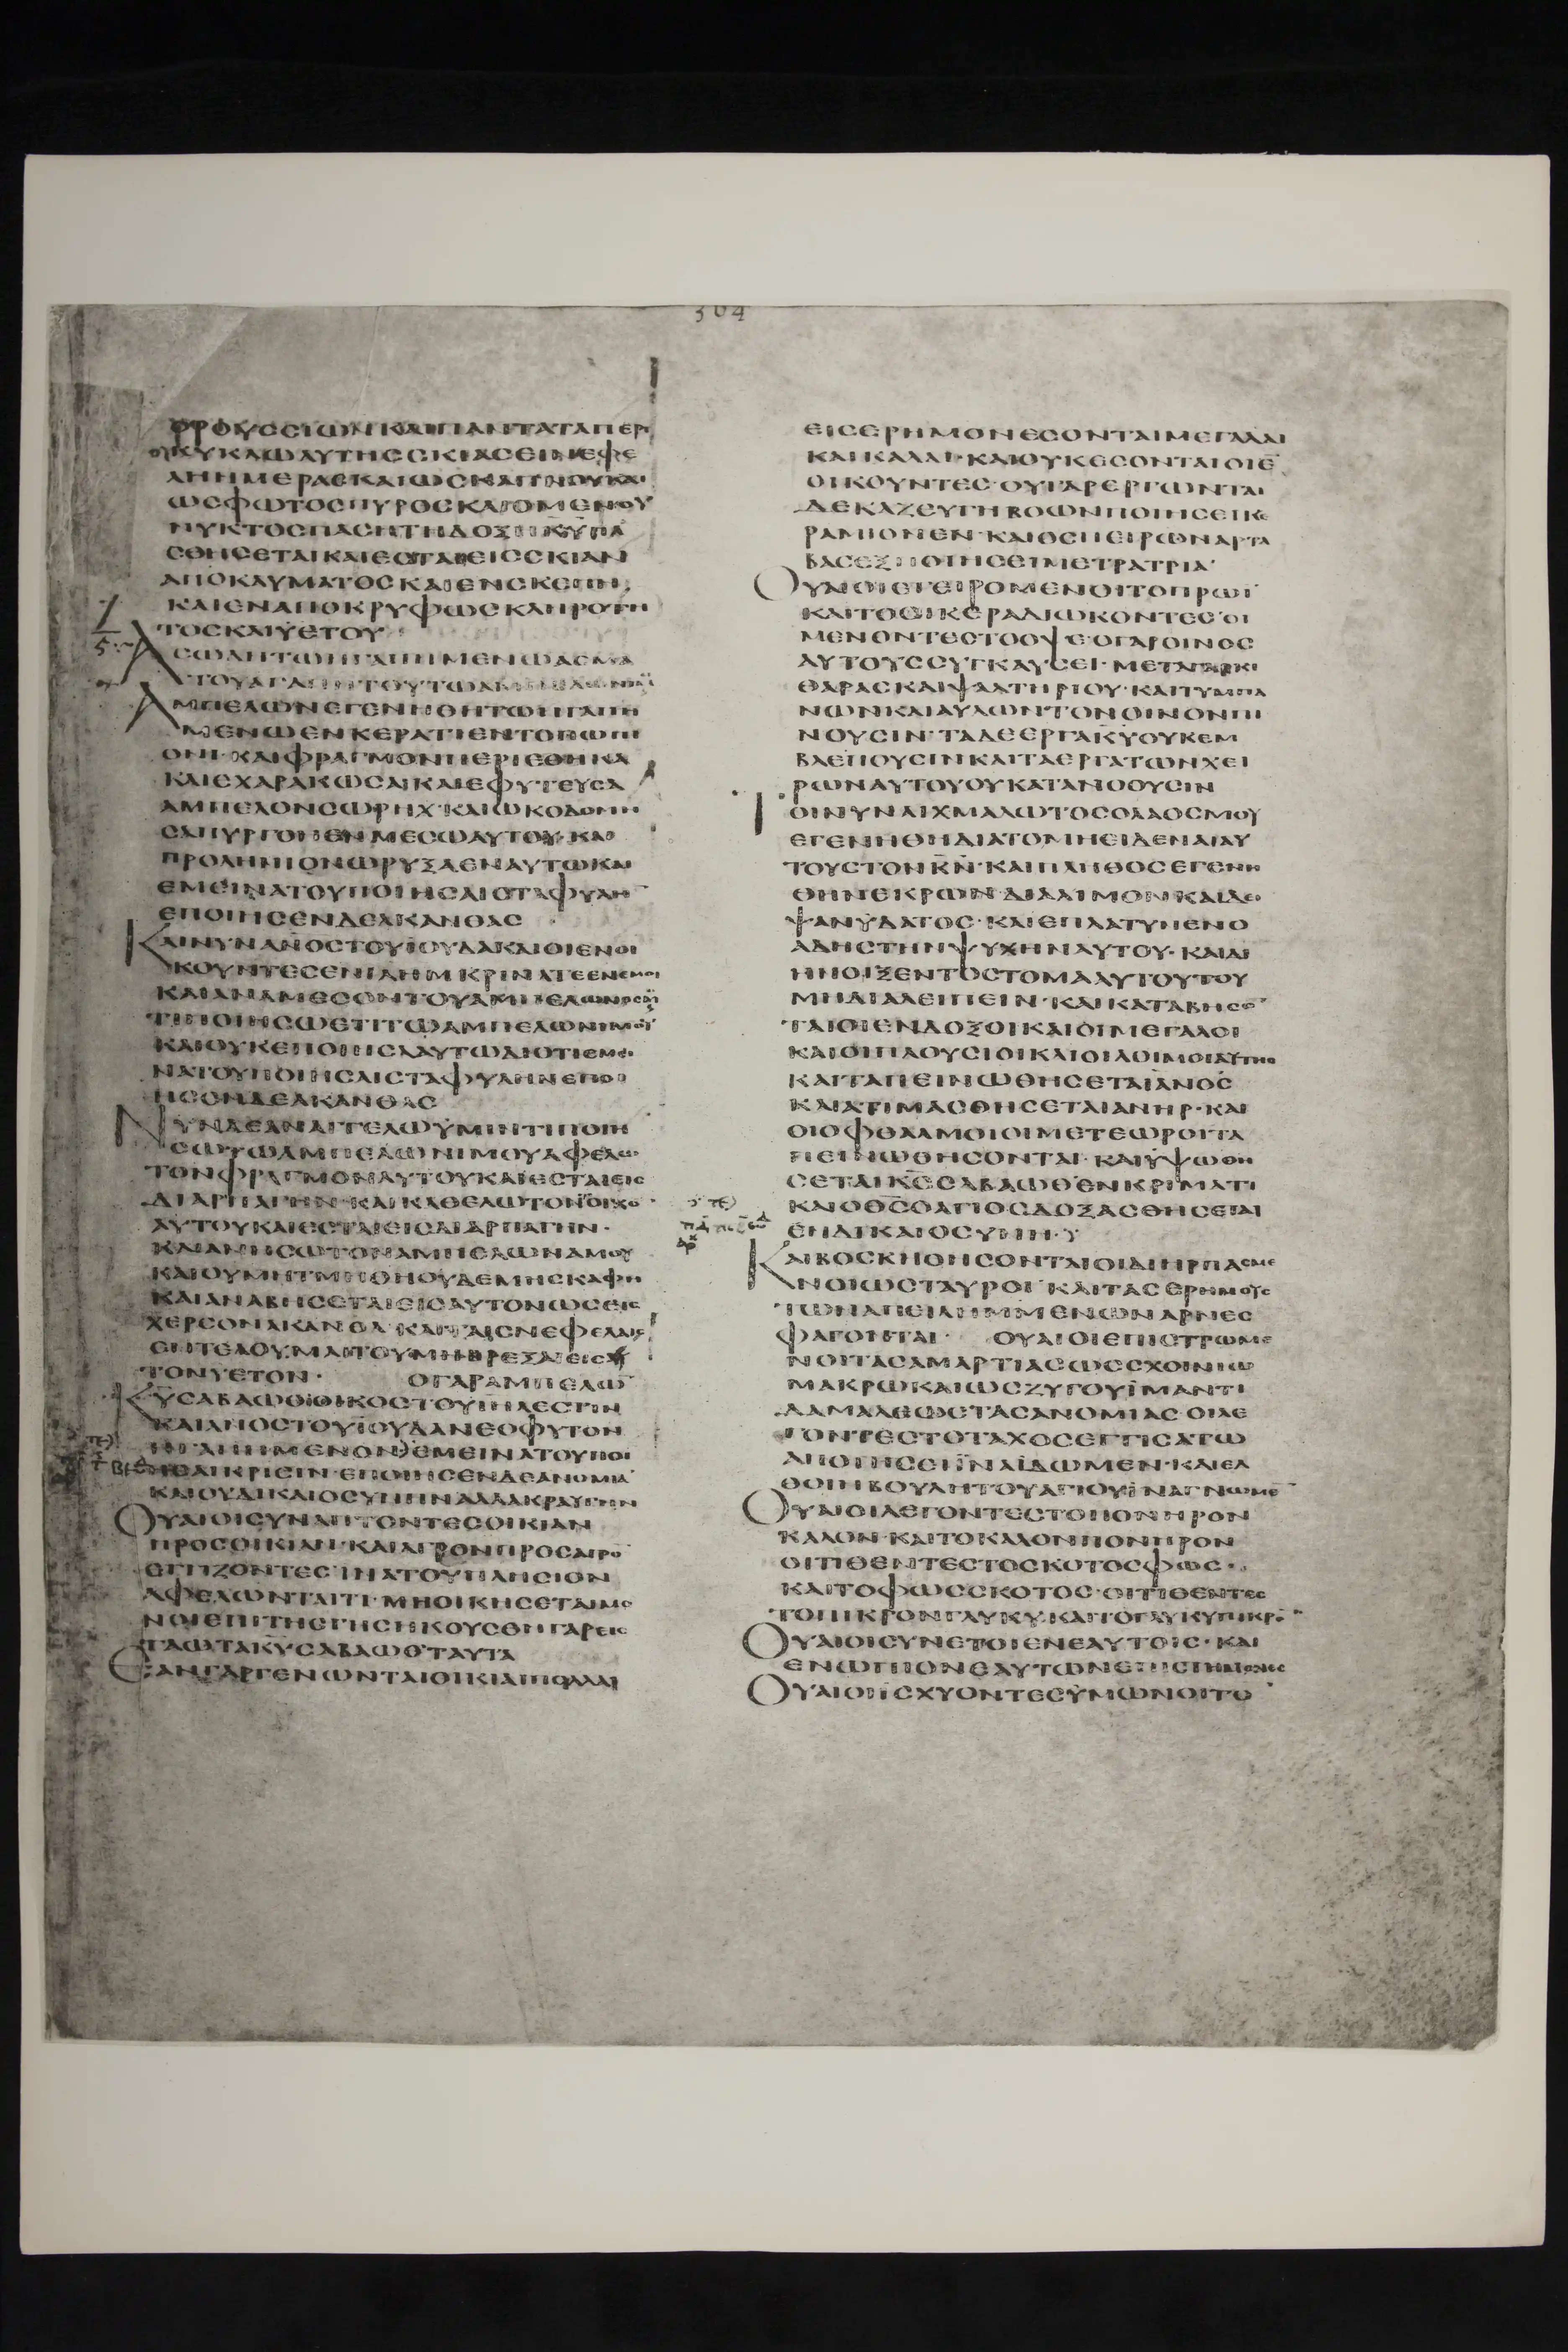 304
ΟΡΟΥССΙΩΝΚΑΙΠΑΝΤΑΤΑΠΕΡΙ
ΚΥΚΛΩΑΥΤΗССΚΙΑСΕΙΝΕΦΕ
ΛΗΗΜΕΡΑСΚΑΙΩСΚΑΠΝΟΥΚΑΙ
ΩСΦΩΤΟСΠΥΡΟСΚΑΙΟΜΕΝΟΥ
ΝΥΚΤΟСΠΑСΗΤΗΔΟΞΗΚΥΠΑ
СΘΗСΕΤΑΙΚΑΙΕСΤΑΙΕΙССΚΙΑΝ
ΑΠΟΚΑΥΜΑΤΟСΚΑΙΕΝСΚΕΠΗ
ΚΑΙΕΝΑΠΟΚΡΥΦΩСΚΛΗΡΟΤΗ
ΤΟСΚΑΙΫΕΤΟΥ
ΑСΩΔΗΤΩΗΓΑΠΗΜΕΝΩΑСΜΑ
ΤΟΥΑΓΑΠΗΤΟΥΤΩΑΜΠΕΛΩΝΙ
ΑΜΠΕΛΩΝΕΓΕΝΗΘΗΤΩΗΓΑΠΗ
ΜΕΝΩΕΝΚΕΡΑΤΙΕΝΤΟΠΩΠΙ
ΟΝΙ·ΚΑΙΦΡΑΓΜΟΝΠΕΡΙΕΘΗΚΑ
ΚΑΙΕΧΑΡΑΚΩСΑΚΑΙΕΦΥΤΕΥСΑ
ΑΜΠΕΛΟΝСΩΡΗΧ·ΚΑΙΩΚΟΔΟΜΗ
СΑΠΥΡΓΟΝΕΝΜΕСΩΑΥΤΟΥ·ΚΑΙ
ΠΡΟΛΗΝΙΟΝΩΡΥΞΑΕΝΑΥΤΩΚΑΙ
ΕΜΕΙΝΑΤΟΥΠΟΙΗСΑΙСΤΑΦΥΛΗ
ΕΠΟΙΗСΕΝΔΕΑΚΑΝΘΑС
ΚΑΙΝΥΝΑΝΟСΤΟΥΪΟΥΔΑΚΑΙΟΙΕΝΟΙ
ΚΟΥΝΤΕСΕΝΙΛΗΜΚΡΙΝΑΤΕΕΝΕΜΟΙ
ΚΑΙΑΝΑΜΕСΟΝΤΟΥΑΜΠΕΛΩΝΟСΜΟΥ
ΤΙΠΟΙΗСΩΕΤΙΤΩΑΜΠΕΛΩΝΙΜΟΥ
ΚΑΙΟΥΚΕΠΟΙΗСΑΑΥΤΩΔΙΟΤΙΕΜΕΙ
ΝΑΤΟΥΠΟΙΗСΑΙСΤΑΦΥΛΗΝΕΠΟΙ
ΗСΕΝΔΕΑΚΑΝΘΑС
ΝΥΝΔΕΑΝΑΓΓΕΛΩΫΜΙΝΤΙΠΟΙΗ
СΩΤΩΑΜΠΕΛΩΝΙΜΟΥΑΦΕΛΩ
ΤΟΝΦΡΑΓΜΟΝΑΥΤΟΥΚΑΙΕСΤΑΙΕΙС
ΔΙΑΡΠΑΓΗΝ·ΚΑΙΚΑΘΕΛΩΤΟΝΟΙΧΟ
ΑΥΤΟΥΚΑΙΕСΤΑΙΕΙСΔΙΑΡΠΑΓΗΝ·
ΚΑΙΑΝΗСΩΤΟΝΑΜΠΕΛΩΝΑΜΟΥ
ΚΑΙΟΥΜΗΤΜΗΘΗΟΥΔΕΜΗСΚΑΦΗ
ΚΑΙΑΝΑΒΗСΕΤΑΙΕΙСΑΥΤΟΝΩСΕΙС
ΧΕΡСΟΝΑΚΑΝΘΑ·ΚΑΙΤΑΙСΝΕΦΕΛΑΙС
ΕΝΤΕΛΟΥΜΑΙΤΟΥΜΗΒΡΕΞΑΙΕΙС
ΤΟΝΥΕΤΟΝ· ΟΓΑΡΑΜΠΕΛΩ
ΚΥСΑΒΑΩΘΟΙΚΟСΤΟΥΙΗΛΕСΤΙΝ
ΚΑΙΑΝΟСΤΟΥΪΟΥΔΑΝΕΟΦΥΤΟΝ
ΗΓΑΠΗΜΕΝΟΝΕΜΕΙΝΑΤΟΥΠΟΙ
ΗСΑΙΚΡΙСΙΝ·ΕΠΟΙΗСΕΝΔΕΑΝΟΜΙΑ
ΚΑΙΟΥΔΙΚΑΙΟСΥΝΗΝΑΛΛΑΚΡΑΥΓΗΝ
ΟΥΑΙΟΙСΥΝΑΠΤΟΝΤΕСΟΙΚΙΑΝ
ΠΡΟСΟΙΚΙΑΝ·ΚΑΙΑΓΡΟΝΠΡΟСΑΓΡΟ
ΕΓΓΙΖΟΝΤΕСΙΝΑΤΟΥΠΛΗСΙΟΝ
ΑΦΕΛΩΝΤΑΙΤΙ·ΜΗΟΙΚΗСΕΤΑΙΜΟ
ΝΟΙΕΠΙΤΗСΓΗСΗΚΟΥСΘΗΓΑΡΕΙС
ΤΑΩΤΑΚΥСΑΒΑΩΘΤΑΥΤΑ
ΕΑΝΓΑΡΓΕΝΩΝΤΑΙΟΙΚΙΑΙΠΟΛΛΑΙ
ΕΙСΕΡΗΜΟΝΕСΟΝΤΑΙΜΕΓΑΛΑΙ
ΚΑΙΚΑΛΑΙ·ΚΑΙΟΥΚΕСΟΝΤΑΙΟΙΕ
ΟΙΚΟΥΝΤΕС·ΟΥΓΑΡΕΡΓΩΝΤΑΙ
ΔΕΚΑΖΕΥΓΗΒΟΩΝΠΟΙΗСΕΙΚΕ
ΡΑΜΙΟΝΕΝ·ΚΑΙΟСΠΕΙΡΩΝΑΡΤΑ
ΒΑСΕΞΠΟΙΗСΕΙΜΕΤΡΑΤΡΙΑ·
ΟΥΑΙΟΙΕΓΕΙΡΟΜΕΝΟΙΤΟΠΡΩΙ
ΚΑΙΤΟСΙΚΕΡΑΔΙΩΚΟΝΤΕС·ΟΙ
ΜΕΝΟΝΤΕСΤΟΟΨΕ·ΟΓΑΡΟΙΝΟС
ΑΥΤΟΥССΥΓΚΑΥСΕΙ·ΜΕΤΑΓΑΡΚΙ
ΘΑΡΑСΚΑΙΨΑΛΤΗΡΙΟΥ·ΚΑΙΤΥΜΠΑ
ΝΩΝΚΑΙΑΥΛΩΝΤΟΝΟΙΝΟΝΠΙ
ΝΟΥСΙΝ·ΤΑΔΕΕΡΓΑΚΥΟΥΚΕΜ
ΒΛΕΠΟΥСΙΝΚΑΙΤΑΕΡΓΑΤΩΝΧΕΙ
ΡΩΝΑΥΤΟΥΟΥΚΑΤΑΝΟΟΥСΙΝ
ΤΟΙΝΥΝΑΙΧΜΑΛΩΤΟСΟΛΑΟСΜΟΥ
ΕΓΕΝΗΘΗΔΙΑΤΟΜΗΕΙΔΕΝΑΙΑΥ
ΤΟΥСΤΟΝΚΝ·ΚΑΙΠΛΗΘΟСΕΓΕΝΗ
ΘΗΝΕΚΡΩΝ·ΔΙΑΛΙΜΟΝΚΑΙΔΙ
ΨΑΝΫΔΑΤΟС·ΚΑΙΕΠΛΑΤΥΝΕΝΟ
ΑΔΗСΤΗΝΨΥΧΗΝΑΥΤΟΥ·ΚΑΙΔΙ
ΗΝΟΙΞΕΝΤΟСΤΟΜΑΑΥΤΟΥΤΟΥ
ΜΗΔΙΑΛΕΙΠΕΙΝ·ΚΑΙΚΑΤΑΒΗСΟ
ΤΑΙΟΙΕΝΔΟΞΟΙΚΑΙΟΙΜΕΓΑΛΟΙ
ΚΑΙΟΙΠΛΟΥСΙΟΙΚΑΙΟΙΛΟΙΜΟΙΑΥΤΗС
ΚΑΙΤΑΠΕΙΝΩΘΗСΕΤΑΙΑΝΟС
ΚΑΙΑΤΙΜΑСΘΗСΕΤΑΙΑΝΗΡ·ΚΑΙ
ΟΙΟΦΘΑΛΜΟΙΟΙΜΕΤΕΩΡΟΙΤΑ
ΠΕΙΝΩΘΗСΟΝΤΑΙ·ΚΑΙΫΨΩΘΗ
СΕΤΑΙΚССΑΒΑΩΘΕΝΚΡΙΜΑΤΙ
ΚΑΙΟΘСΟΑΓΙΟСΔΟΞΑСΘΗСΕΤΑΙ
ΕΝΔΙΚΑΙΟСΥΝΗ·
ΚΑΙΒΟСΚΗΘΗСΟΝΤΑΙΟΙΔΙΗΡΠΑСΜΕ
ΝΟΙΩСΤΑΥΡΟΙ·ΚΑΙΤΑСΕΡΗΜΟΥС
ΤΩΝΑΠΕΙΛΗΜΜΕΝΩΝΑΡΝΕС
ΦΑΓΟΝΤΑΙ· ΟΥΑΙΟΙΕΠΙСΠΡΩΜΕ
ΝΟΙΤΑСΑΜΑΡΤΙΑСΩССΧΟΙΝΙΩ
ΜΑΚΡΩΚΑΙΩСΖΥΓΟΥΪΜΑΝΤΙ
ΔΑΜΑΛΕΩСΤΑСΑΝΟΜΙΑС·ΟΙΛΕ
ΓΟΝΤΕСΤΟΤΑΧΟСΕΓΓΙСΑΤΩ
ΑΠΟΙΗСΕΙΪΝΑΪΔΩΜΕΝ·ΚΑΙΕΛ
ΘΟΙΗΒΟΥΛΗΤΟΥΑΓΙΟΥΙΝΑΓΝΩΜΕ
ΟΥΑΙΟΙΛΕΓΟΝΤΕСΤΟΠΟΝΗΡΟΝ
ΚΑΛΟΝ·ΚΑΙΤΟΚΑΛΟΝΠΟΝΗΡΟΝ
ΟΙΤΙΘΕΝΤΕСΤΟСΚΟΤΟСΦΩС·
ΚΑΙΤΟΦΩССΚΟΤΟС·ΟΙΤΙΘΕΝΤΕС
ΤΟΠΙΚΡΟΝΓΛΥΚΥ·ΚΑΙΤΟΓΛΥΚΥΠΙΚΡΟ
ΟΥΑΙΟΙСΥΝΕΤΟΙΕΝΕΑΥΤΟΙС·ΚΑΙ
ΕΝΩΠΙΟΝΕΑΥΤΩΝΕΠΙСΤΗΜΟΝΕС
ΟΥΑΙΟΙΙСΧΥΟΝΤΕСΫΜΩΝΟΙΤΟ